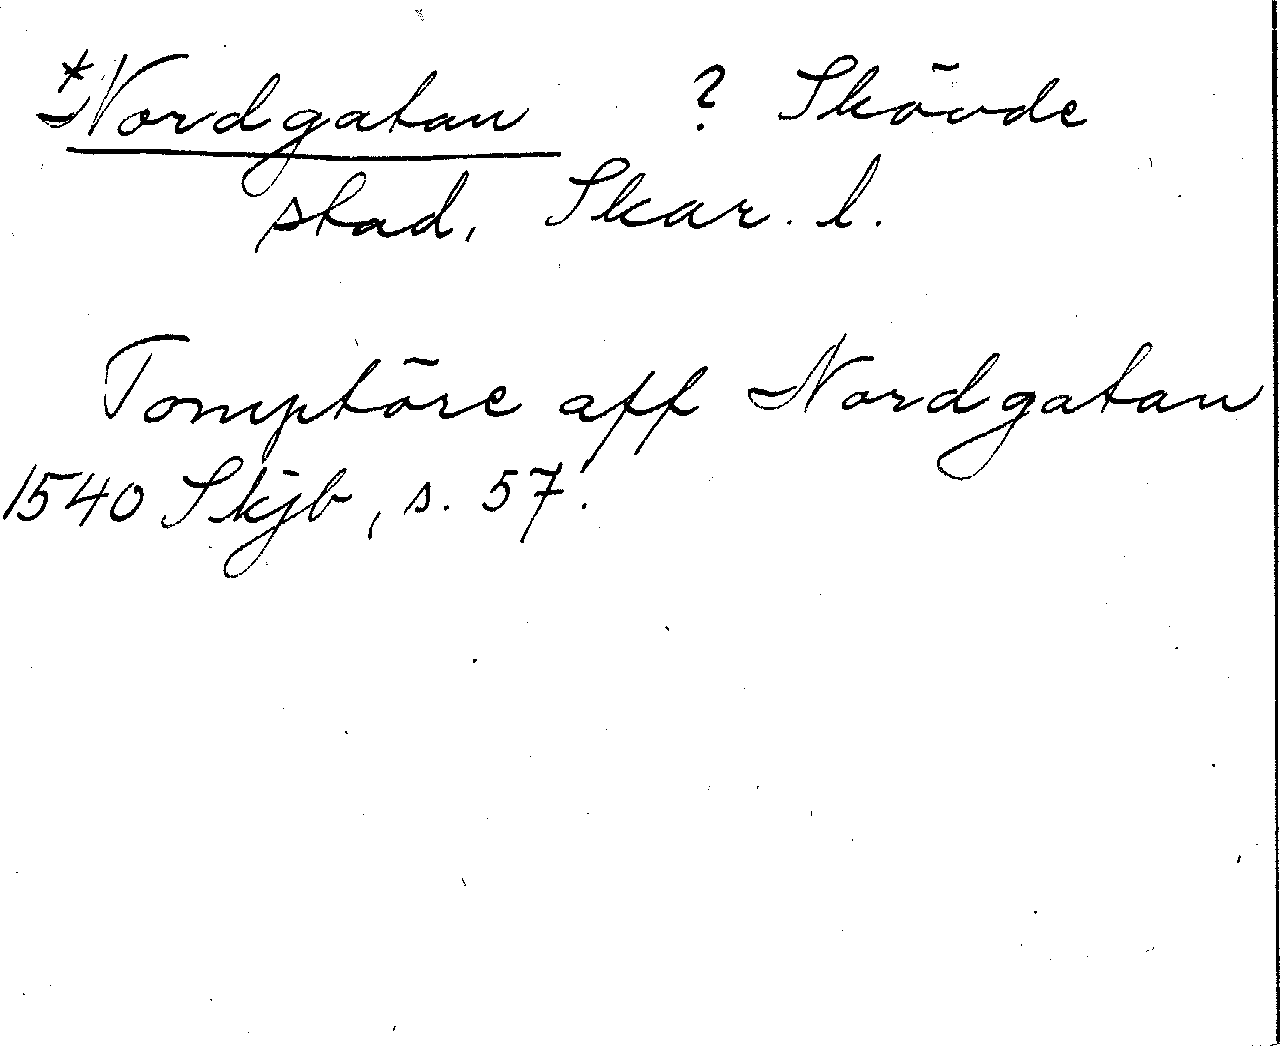 *Nordgatan ? Skövde
stad, Skar. l.
Tomptöre aff Nordgatan
1540 Skjb, s. 57.